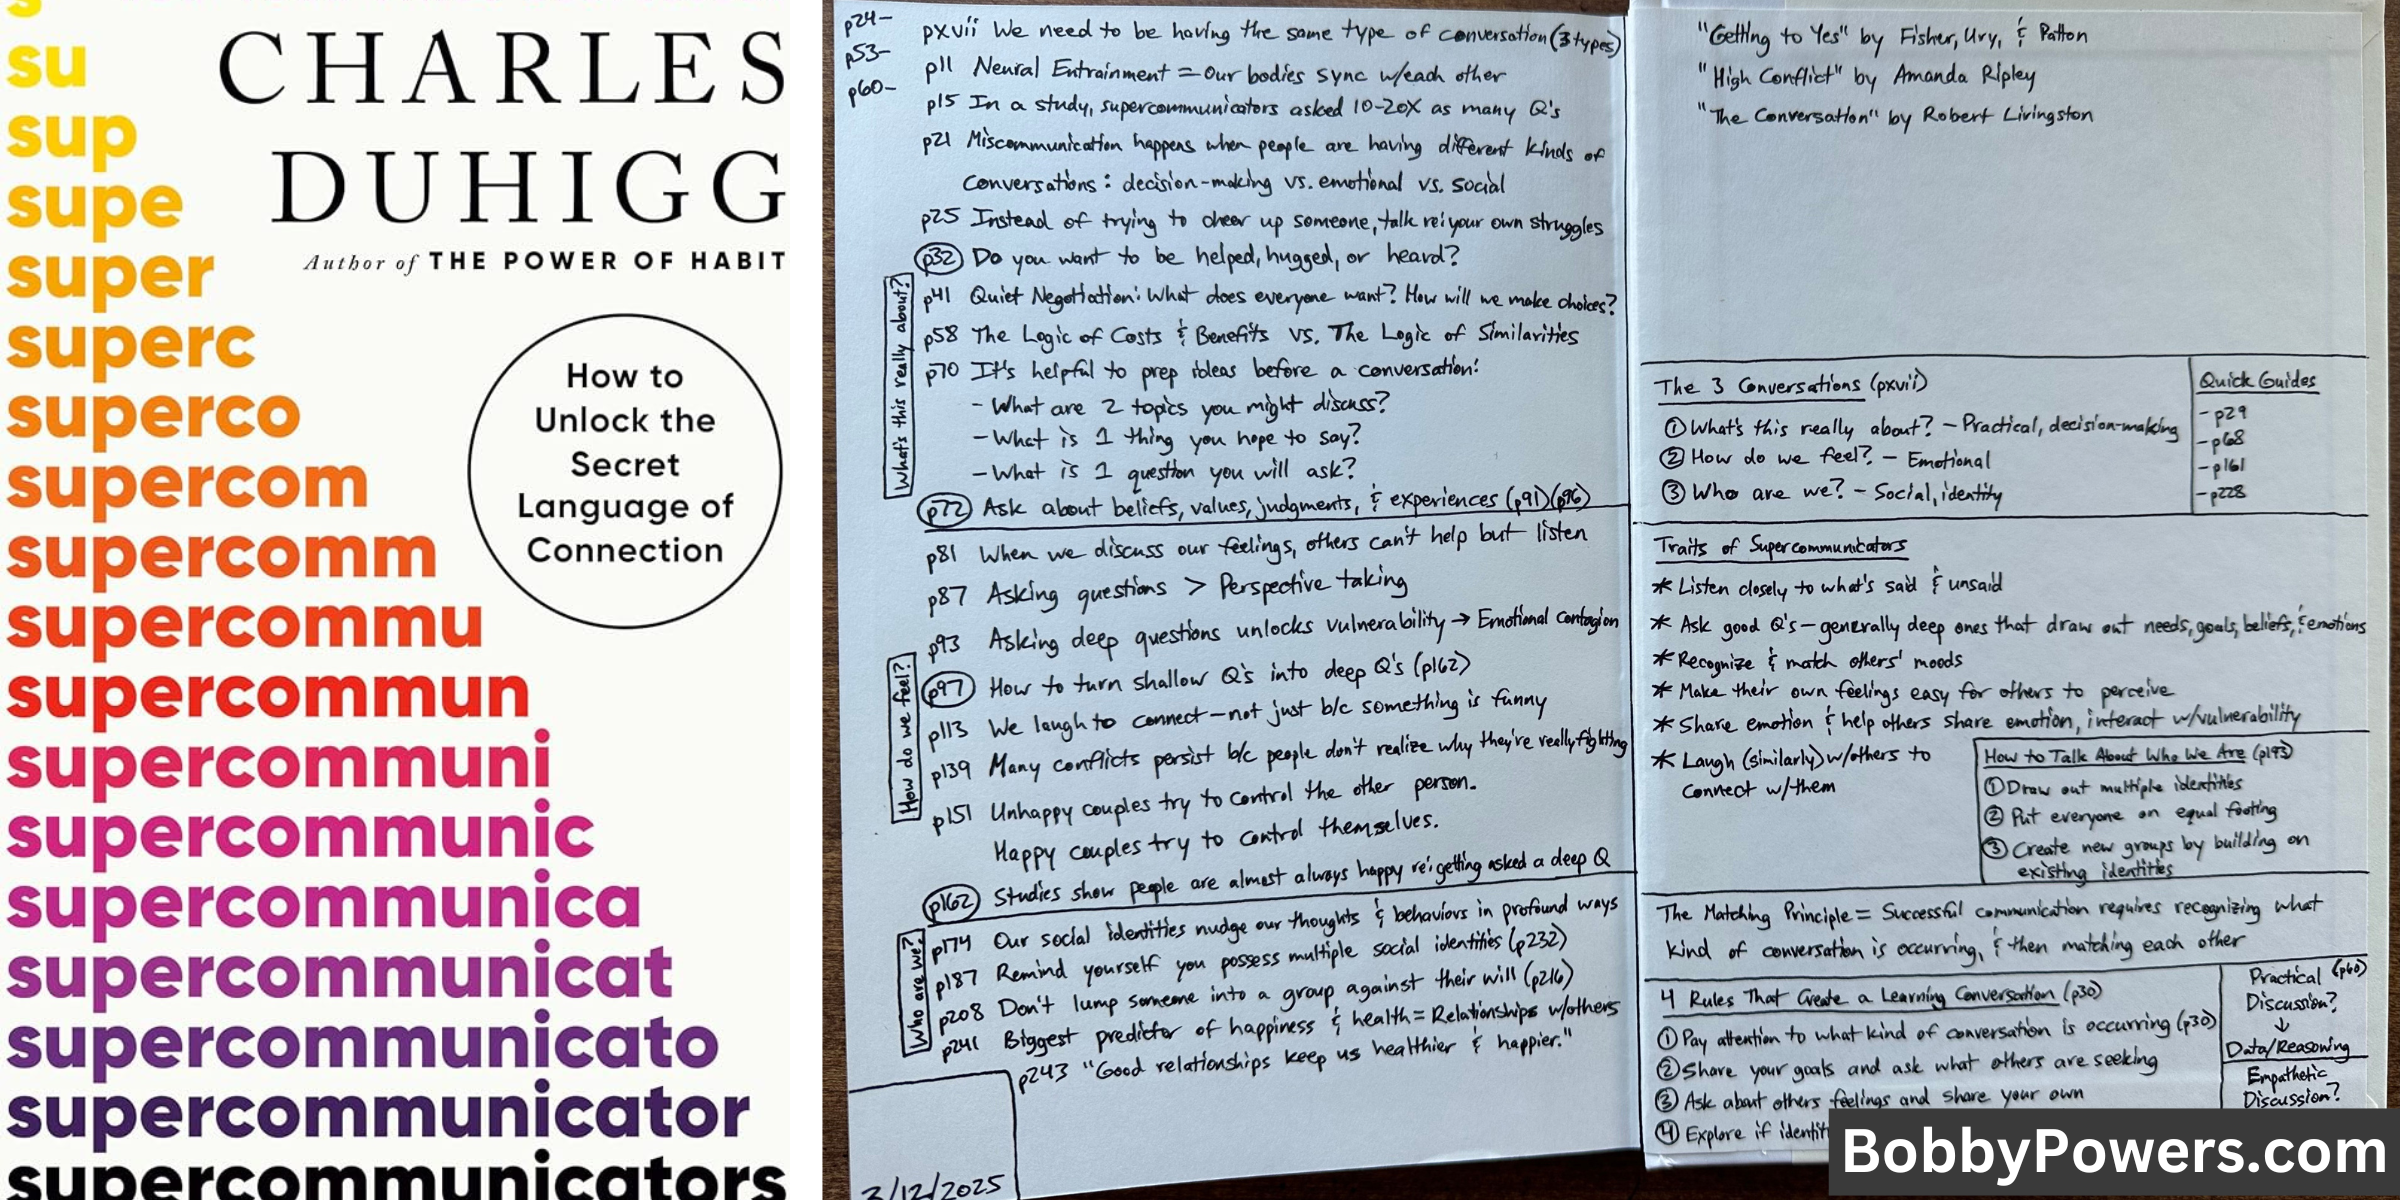 s
su
sup
supe
super
superc
superco
supercom
supercomm
supercommu
supercommun
supercommuni
supercommunic
supercommunica
supercommunicat
supercommunicato
supercommunicator
supercommunicators
CHARLES
DUHIGG
Author of THE POWER OF HABIT
How to
Unlock the
Secret
Language of
Connection
p24-
p53-
p60-
pxvii We need to be having the same type of conversation (3 types)
p11 Neural Entrainment = Our bodies sync w/each other
p15 In a study, supercommunicators asked 10-20X as many Q's
p21 Miscommunication happens when people are having different kinds of
conversations: decision-making vs. emotional vs. social
p25 Instead of trying to cheer up someone, talk re: your own struggles
p32 Do you want to be helped, hugged, or heard?
What's this really about?
p41 Quiet Negotiation: What does everyone want? How will we make choices?
p58 The Logic of Costs & Benefits vs. The Logic of Similarities
p70 It's helpful to prep ideas before a conversation:
- What are 2 topics you might discuss?
- What is 1 thing you hope to say?
- What is 1 question you will ask?
p72 Ask about beliefs, values, judgments, & experiences (p91) (p96)
p81 When we discuss our feelings, others can't help but listen
p87 Asking questions > Perspective taking
p93 Asking deep questions unlocks vulnerability → Emotional contagion
How do we feel?
p97 How to turn shallow Q's into deep Q's (p162)
p113 We laugh to connect - not just b/c something is funny
p139 Many conflicts persist b/c people don't realize why they're really fighting
p151 Unhappy couples try to control the other person.
Happy couples try to control themselves.
p162 Studies show people are almost always happy re: getting asked a deep Q
Who are we?
p174 Our social identities nudge our thoughts & behaviors in profound ways
p187 Remind yourself you possess multiple social identities (p232)
p208 Don't lump someone into a group against their will (p216)
p241 Biggest predictor of happiness & health = Relationships w/others
p243 "Good relationships keep us healthier & happier."
3/12/2025
"Getting to Yes" by Fisher, Ury, & Patton
"High Conflict" by Amanda Ripley
"The Conversation" by Robert Livingston
The 3 Conversations (pxvii)
① What's this really about? - Practical, decision-making
② How do we feel? - Emotional
③ Who are we? - Social, identity
Quick Guides
- p29
- p68
- p161
- p228
Traits of Supercommunicators
* Listen closely to what's said & unsaid
* Ask good Q's - generally deep ones that draw out needs, goals, beliefs, & emotions
* Recognize & match others' moods
* Make their own feelings easy for others to perceive
* Share emotion & help others share emotion, interact w/vulnerability
* Laugh (similarly) w/others to
connect w/them
How to Talk About Who We Are (p193)
① Draw out multiple identities
② Put everyone on equal footing
③ Create new groups by building on
existing identities
The Matching Principle = Successful communication requires recognizing what
kind of conversation is occurring, & then matching each other
4 Rules That Create a Learning Conversation (p30)
① Pay attention to what kind of conversation is occurring (p30)
② Share your goals and ask what others are seeking
③ Ask about others feelings and share your own
④ Explore if identit
Practical (p60)
Discussion?
↓
Data/Reasoning
Empathetic
Discussion?
BobbyPowers.com